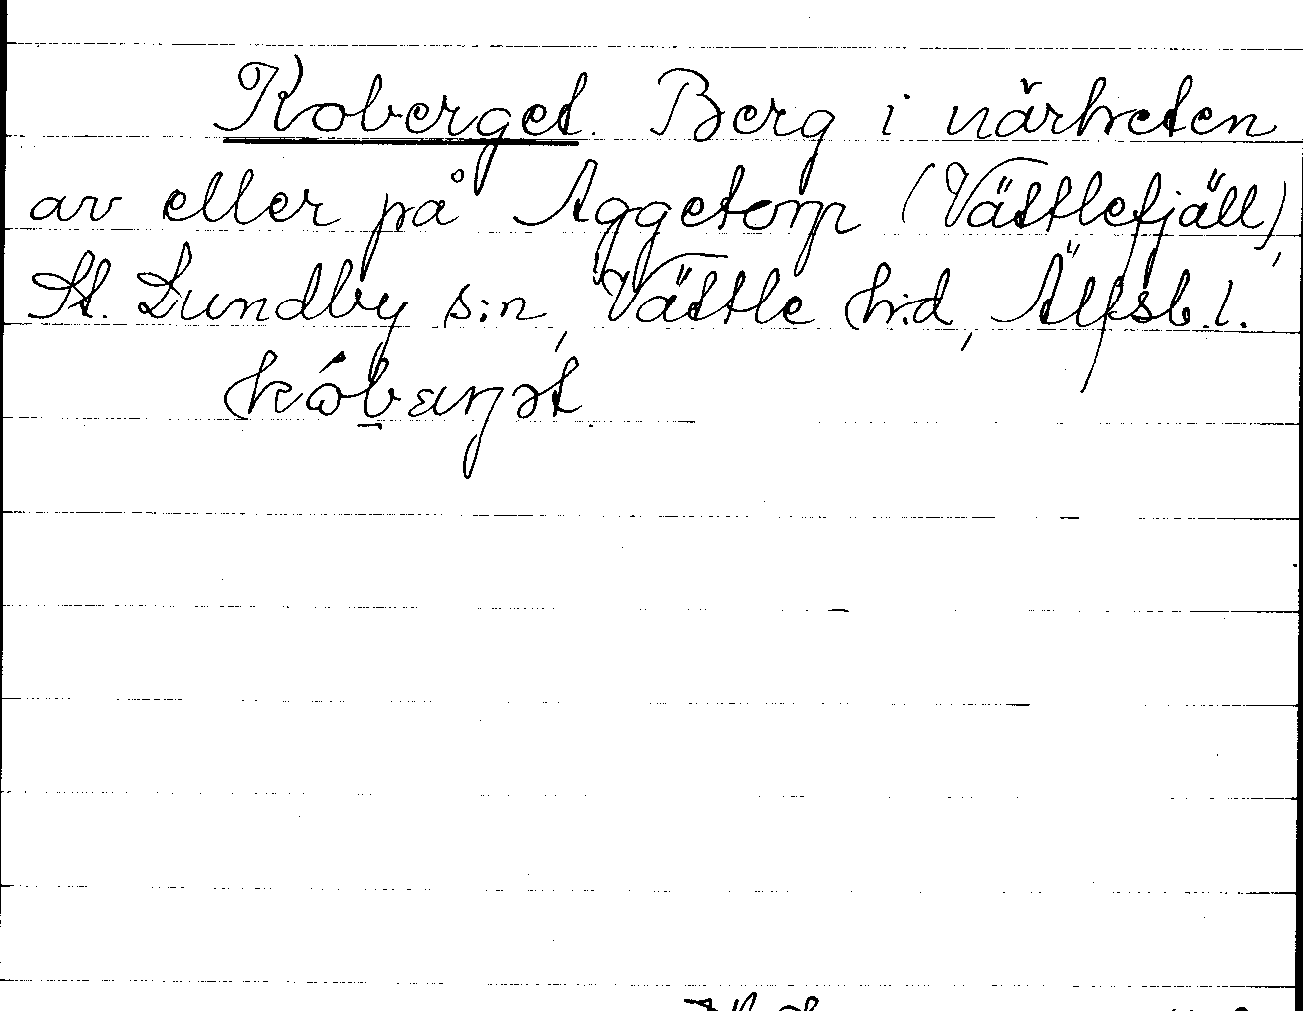 Koberget. Berg i närheten
av eller på Aggetorp (Vättlefjäll),
St. Lundby s:n, Vättle h:d, Älfsb. l.